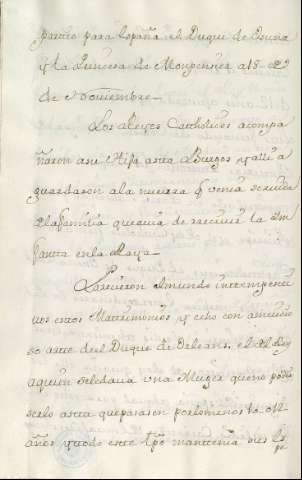 partio para España el Duque de Osuna
y la Princesa de Monpensier a 18 de
de Noviembre.
Los Reyes Catholicos acompa
ñaron a su Hija asta Burgos y alli a
guardaron a la nuera q venia servida
de la familia que avia de recivir la Im
fanta en la Raya.
Parecieron al mundo intempesti
vos estos Matrimonios y echo con
so arte del Duque de Orleans, el del Rey
a quien se le dava una Muger que no podia
serlo asta que pasasen por lo menos
años y todo este tpo mantenia